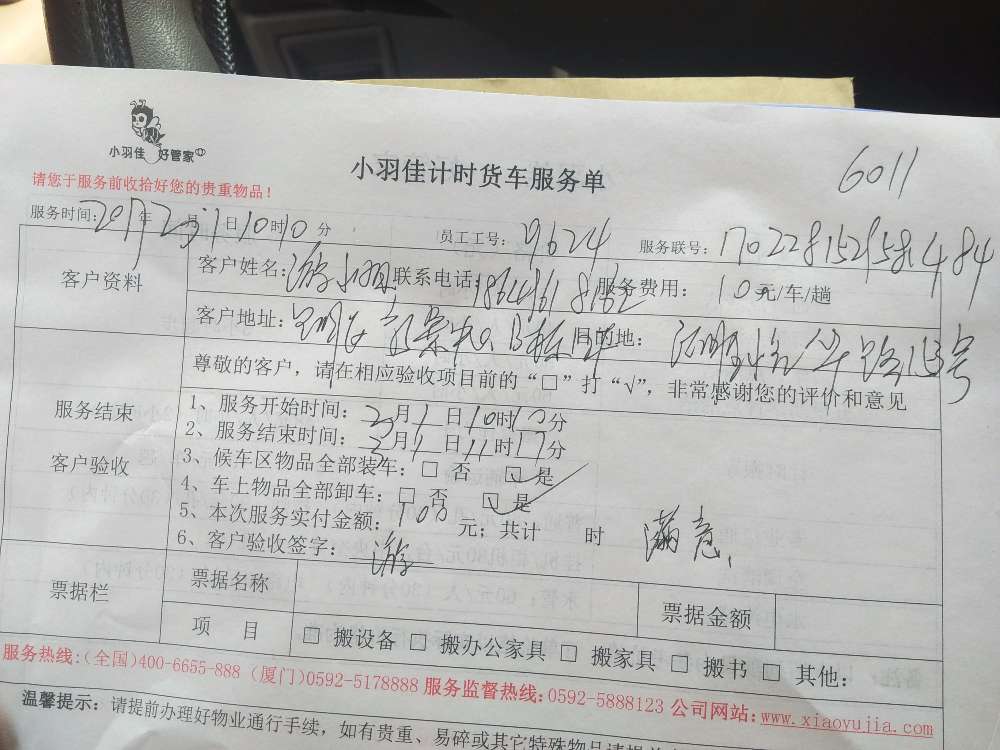 小羽佳 好管家
小羽佳计时货车服务单
6011
请您于服务前收拾好您的贵重物品！
服务时间: 2017年2月1日10时10分 员工工号: 9624 服务联号:
客户资料
客户姓名: 游 联系电话: 服务费用: 元/车/趟
客户地址: 目的地: 号
服务结束
客户验收
尊敬的客户，请在相应验收项目前的“□”打“√”，非常感谢您的评价和意见
1、服务开始时间: 月1日10时10分
2、服务结束时间: 月1日11时17分
3、候车区物品全部装车: □ 否 ☑ 是
4、车上物品全部卸车: □ 否 ☑ 是
5、本次服务实付金额: 100 元; 共计 时 满意
6、客户验收签字: 游
票据栏
票据名称 票据金额
项 目 □ 搬设备 □ 搬办公家具 □ 搬家具 □ 搬书 □ 其他:
服务热线:(全国)400-6655-888 (厦门)0592-5178888 服务监督热线:0592-5888123 公司网站:www.xiaoyujia.com
温馨提示: 请提前办理好物业通行手续，如有贵重、易碎或其它特殊物品请提前